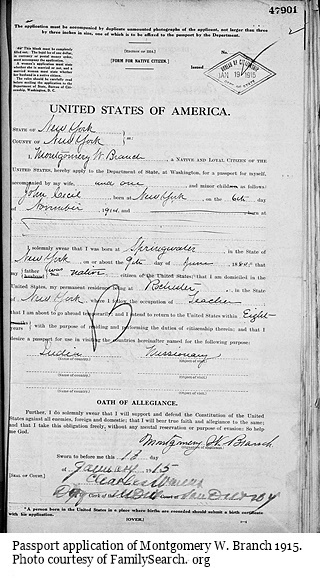 47901
2
The application must be accompanied by duplicate unmounted photographs of the applicant, not larger than three
by three inches in size, one of which is to be affixed to the passport by the Department.
[FORM FOR NATIVE CITIZEN.]
No.
Issued
BUREAU OF CITIZENSHIP
JAN 19 1915
UNITED STATES OF AMERICA.
STATE OF New York
COUNTY OF New York
I, Montgomery W. Branch, A NATIVE AND LOYAL CITIZEN OF THE
UNITED STATES, hereby apply to the Department of State, at Washington, for a passport for myself,
accompanied by my wife, and one and minor children as follows:
John Cecil, born at New York, on the 6th day
of November, 1912, and born at
I solemnly swear that I was born at Springwater, in the State of
New York, on the 9th day of June
my father was native citizen of the United States; that I am domiciled in the
United States, my permanent residence being at, in the State
of New York, where I follow the occupation of Teacher
that I am about to go abroad temporarily; and I intend to return to the United States within Eight
years with the purpose of residing and performing the duties of citizenship therein; and that I
desire a passport for use in visiting the countries hereinafter named for the following purpose:
Missionary
(Name of country.) (Object of visit.)
(Name of country.)
(Name of country.)
OATH OF ALLEGIANCE.
Further, I do solemnly swear that I will support and defend the Constitution of the United
States against all enemies, foreign and domestic; that I will bear true faith and allegiance to the same;
and that I take this obligation freely, without any mental reservation or purpose of evasion: So help
me God.
Montgomery W. Branch
(Signature of applicant.)
Sworn to before me this 13 day
of January 1915
[SEAL OF COURT.]
Clerk of the Court
*A person born in the United States in a place where births are recorded should submit a birth certificate
with his application.
[OVER.]
Passport application of Montgomery W. Branch 1915.
Photo courtesy of FamilySearch. org